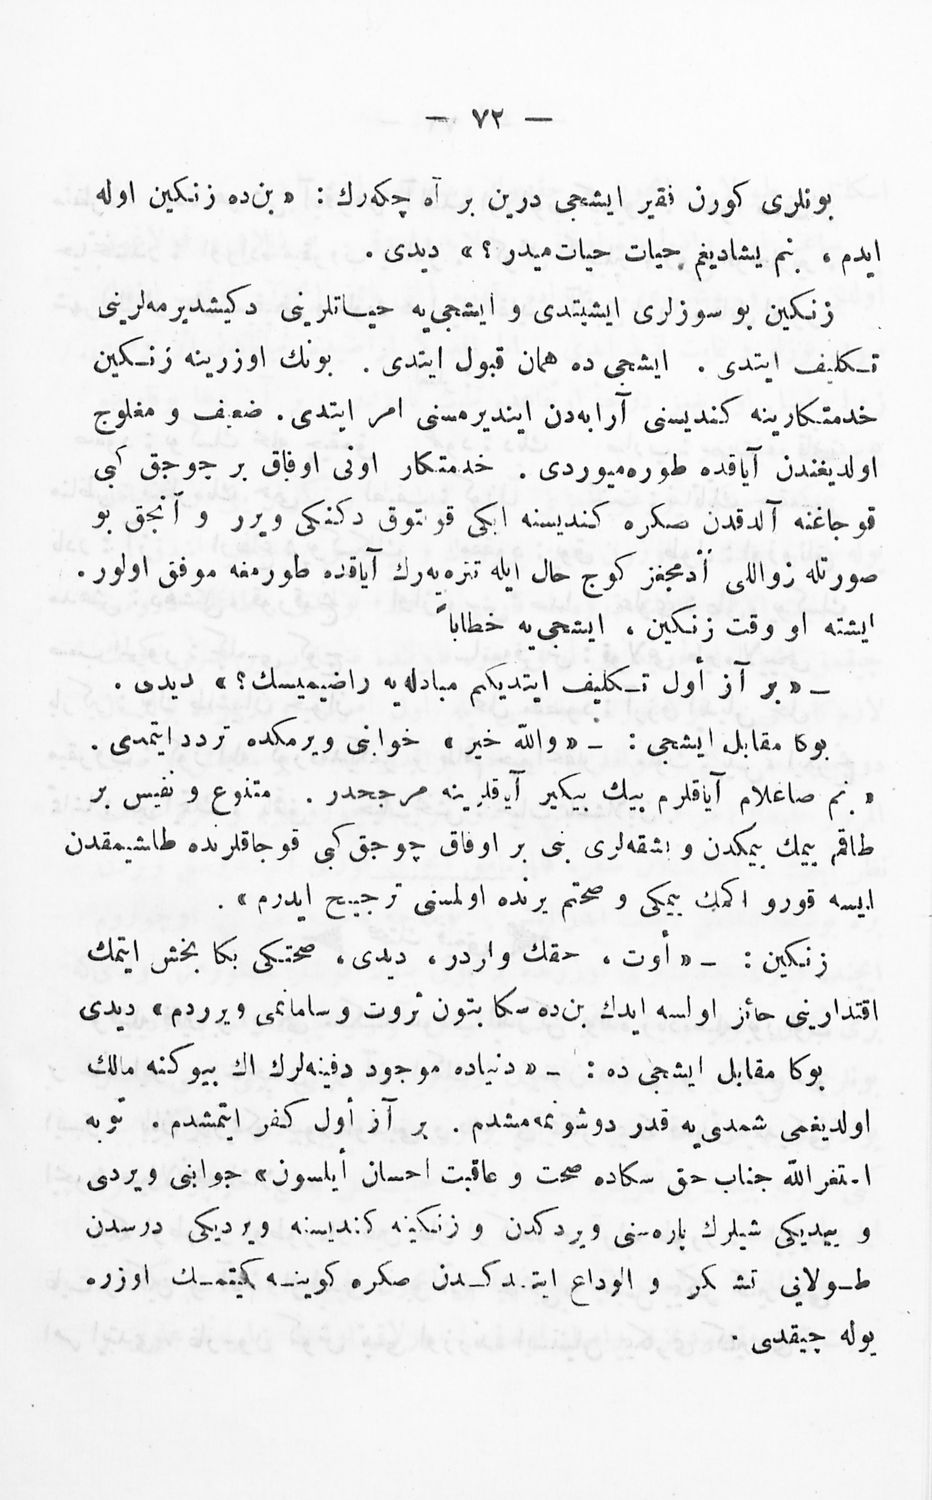 — ٧٢ —
بونلری كورن فقیر ایشجی درین بر آه چكه‌رك : « بن‌ده زنكین اوله
ایدم ، بنم یشادیغم حیات حیات‌میدر ؟ » دیدی .
زنكین بو سوزلری ایشیتدی و ایشجی‌یه حیاتلرینی دكیشدیرمه‌لرینی
تكلیف ایتدی . ایشجی ده همان قبول ایتدی . بونك اوزرینه زنكین
خدمتكارینه كندیسنی آرابه‌دن ایندیرمسنی امر ایتدی . ضعیف و مفلوج
اولدیغندن آیاقده طوره‌میوردی . خدمتكار اونی اوفاق بر چوجق كبی
قوجاغنه آلدقدن صكره كندیسنه ایكی قولتوق دكنكی ویرر و آنجق بو
صورتله زواللی آدمجغز كوج حال ایله تتره‌یه‌رك آیاقده طورمغه موفق اولور .
ایشته او وقت زنكین ، ایشجی‌یه خطاباً
– « بر آز أول تكلیف ایتدیكم مبادله‌یه راضیمیسك ؟ » دیدی .
بوكا مقابل ایشجی : – « والله خیر » خوابنی ویرمكده تردد ایتمدی .
« بنم صاغلام آیاقلرم بیك بیكیر آیاقلرینه مرجحدر . متنوع و نفیس بر
طاقم ییمك ییمكدن و بشقه‌لری بنی بر اوفاق چوجق كبی قوجاقلرنده طاشیمقدن
ایسه قورو اكمك ییمكی و صحتم یرنده اولمسنی ترجیح ایدرم » .
زنكین : – « أوت ، حقك واردر ، دیدی ، صحتكی بكا بخش ایتمك
اقتدارینی حائز اولسه ایدك بن‌ده سكا بتون ثروت و سامانمی ویرردم » دیدی
بوكا مقابل ایشجی ده : – « دنیاده موجود دفینه‌لرك اك بیوكنه مالك
اولدیغمی شمدی‌یه قدر دوشونمه‌مشدم . بر آز أول كفر ایتمشدم . توبه
استغفرالله جناب حق سكاده صحت و عاقبت احسان أیلسون » جوابنی ویردی
و ییدیكی شیلرك پاره‌سنی ویردكدن و زنكینه كندیسنه ویردیكی درسدن
طولایی تشكر و الوداع ایتدكدن صكره كوینه كیتمك اوزره
یوله چیقدی .